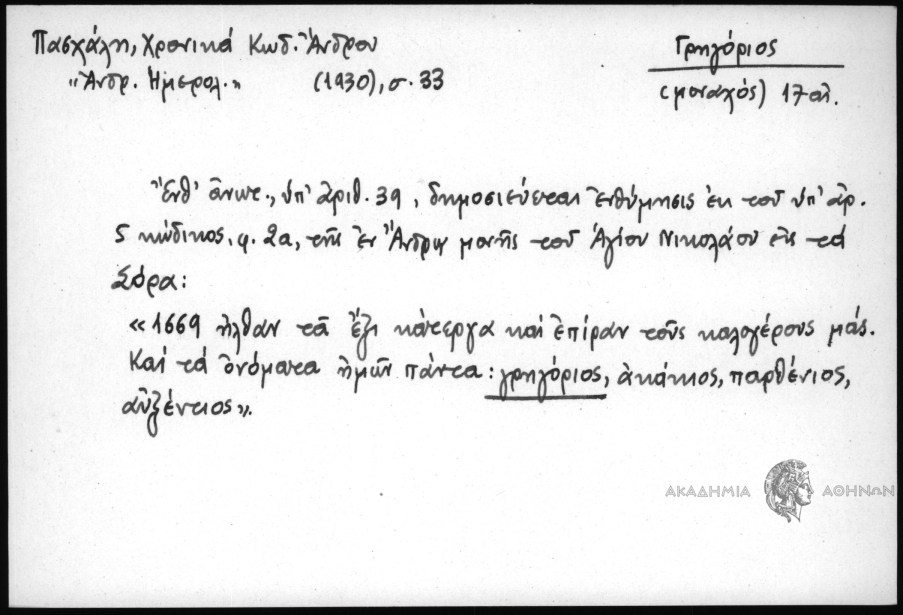 Πασχάλη, Χρονικά Κωδ. Ἄνδρου
Γρηγόριος
"Ἀνδρ. Ἡμερολ." (1930), σ. 33
(μοναχός) 17 αἰ.
Ἔνθ' ἄνωτ., ὑπ' ἀριθ. 39, δημοσιεύεται ἐνθύμησις ἐκ τοῦ ὑπ' ἀρ.
5 κώδικος, φ. 2α, τῆς ἐν Ἄνδρῳ μονῆς τοῦ Ἁγίου Νικολάου εἰς τὰ
Σόρα:
«1669 ἦλθαν τὰ ἕξι κάτεργα καὶ ἐπίραν τοὺς καλογέρους μάς.
Καὶ τὰ ὀνόματα ἡμῶν πάντα: γρηγόριος, ἀκάκιος, παρθένιος,
αὐξέντιος».
ΑΚΑΔΗΜΙΑ ΑΘΗΝΩΝ